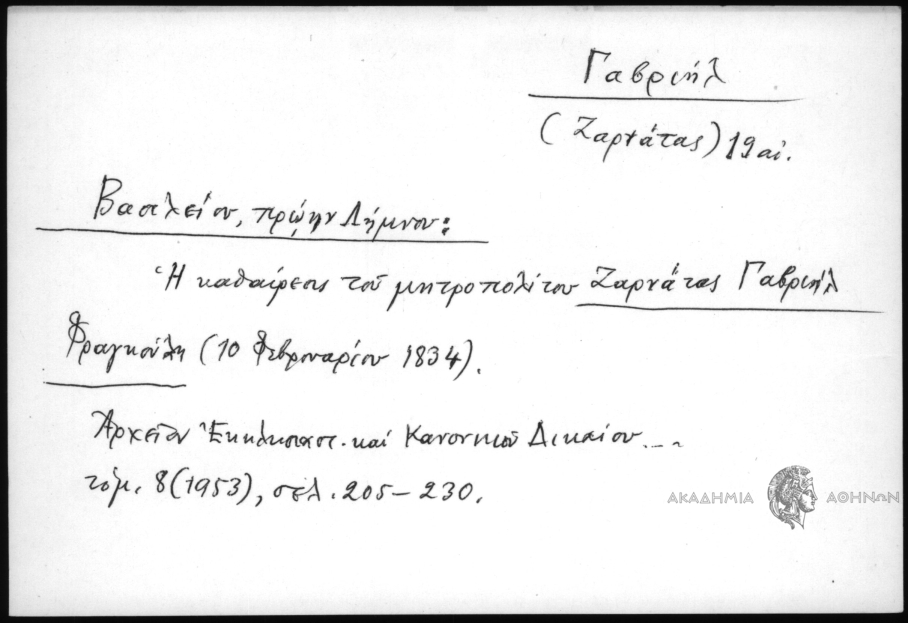 Γαβριήλ
(Ζαρνάτας) 19 αἰ.
Βασιλείου, πρῴην Λήμνου:
Ἡ καθαίρεσις τοῦ μητροπολίτου Ζαρνάτας Γαβριήλ
Φραγκούλη (10 Φεβρουαρίου 1834).
Ἀρχεῖον Ἐκκλησιαστ. καί Κανονικοῦ Δικαίου....
τόμ. 8 (1953), σελ. 205-230.
ΑΚΑΔΗΜΙΑ ΑΘΗΝΩΝ